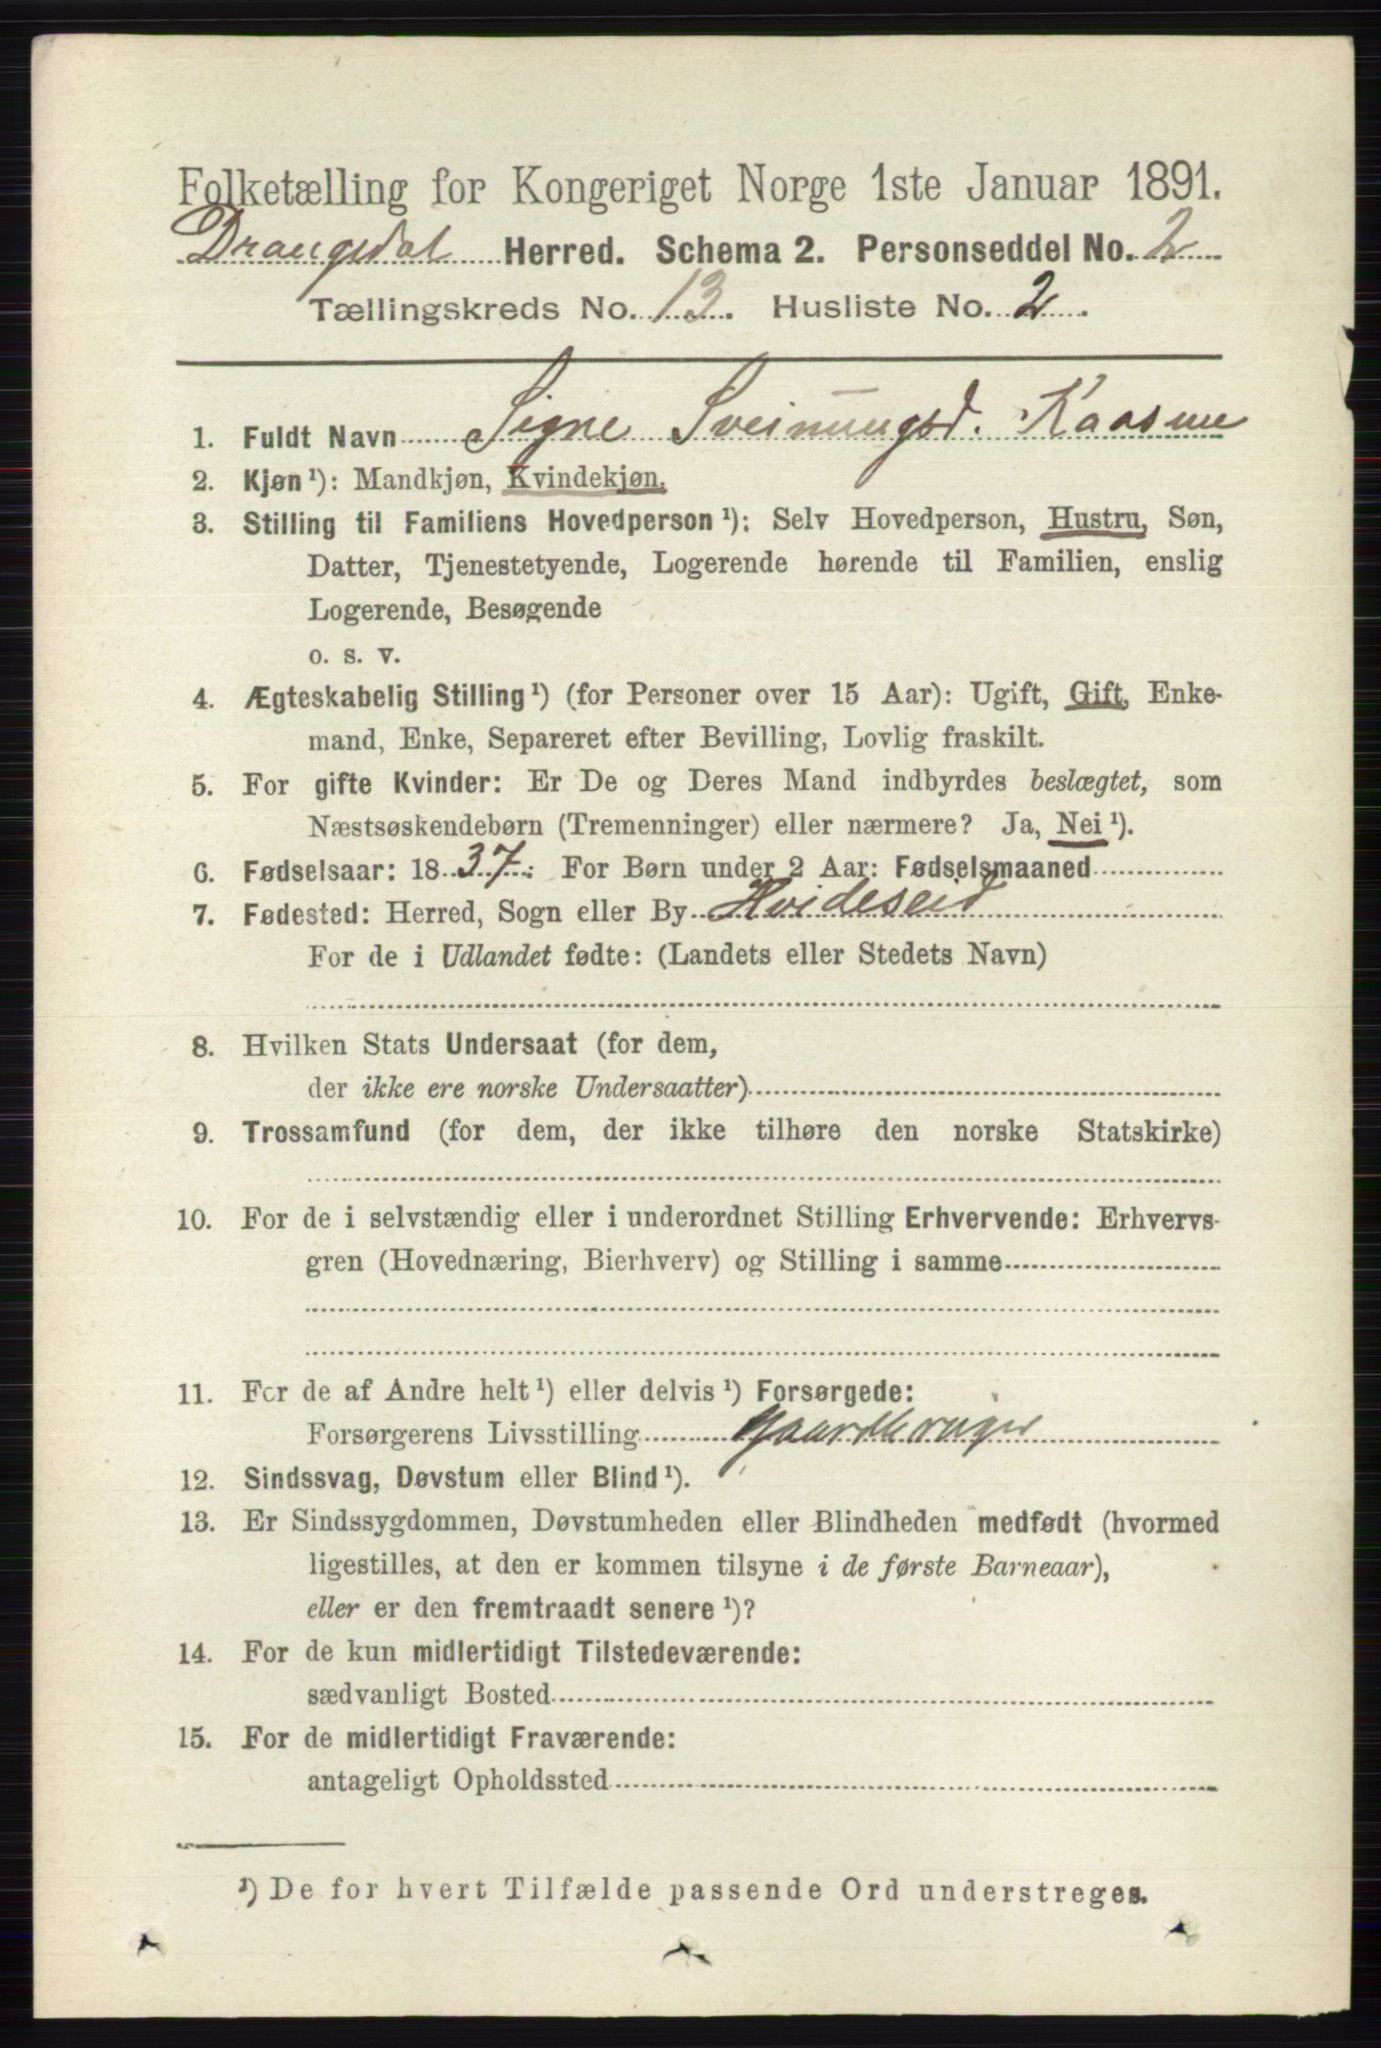 Folketælling for Kongeriget Norge 1ste Januar 1891.
Drangedal Herred. Schema 2. Personseddel No. 2
Tællingskreds No. 13. Husliste No. 2.
1. Fuldt Navn Signe Sveinungsd. Kaasene
2. Kjøn ¹): Mandkjøn, Kvindekjøn.
3. Stilling til Familiens Hovedperson ¹): Selv Hovedperson, Hustru, Søn,
Datter, Tjenestetyende, Logerende hørende til Familien, enslig
Logerende, Besøgende
o. s. v.
4. Ægteskabelig Stilling ¹) (for Personer over 15 Aar): Ugift, Gift, Enke-
mand, Enke, Separeret efter Bevilling, Lovlig fraskilt.
5. For gifte Kvinder: Er De og Deres Mand indbyrdes beslægtet, som
Næstsøskendebørn (Tremenninger) eller nærmere? Ja, Nei ¹).
6. Fødselsaar: 1837. For Børn under 2 Aar: Fødselsmaaned
7. Fødested: Herred, Sogn eller By Hvideseid
For de i Udlandet fødte: (Landets eller Stedets Navn)
8. Hvilken Stats Undersaat (for dem,
der ikke ere norske Undersaatter)
9. Trossamfund (for dem, der ikke tilhøre den norske Statskirke)
10. For de i selvstændig eller i underordnet Stilling Erhvervende: Erhvervs-
gren (Hovednæring, Bierhverv) og Stilling i samme
11. For de af Andre helt ¹) eller delvis ¹) Forsørgede:
Forsørgerens Livsstilling Gaardbruger
12. Sindssvag, Døvstum eller Blind ¹).
13. Er Sindssygdommen, Døvstumheden eller Blindheden medfødt (hvormed
ligestilles, at den er kommen tilsyne i de første Barneaar),
eller er den fremtraadt senere ¹)?
14. For de kun midlertidigt Tilstedeværende:
sædvanligt Bosted
15. For de midlertidigt Fraværende:
antageligt Opholdssted
¹) De for hvert Tilfælde passende Ord understreges.